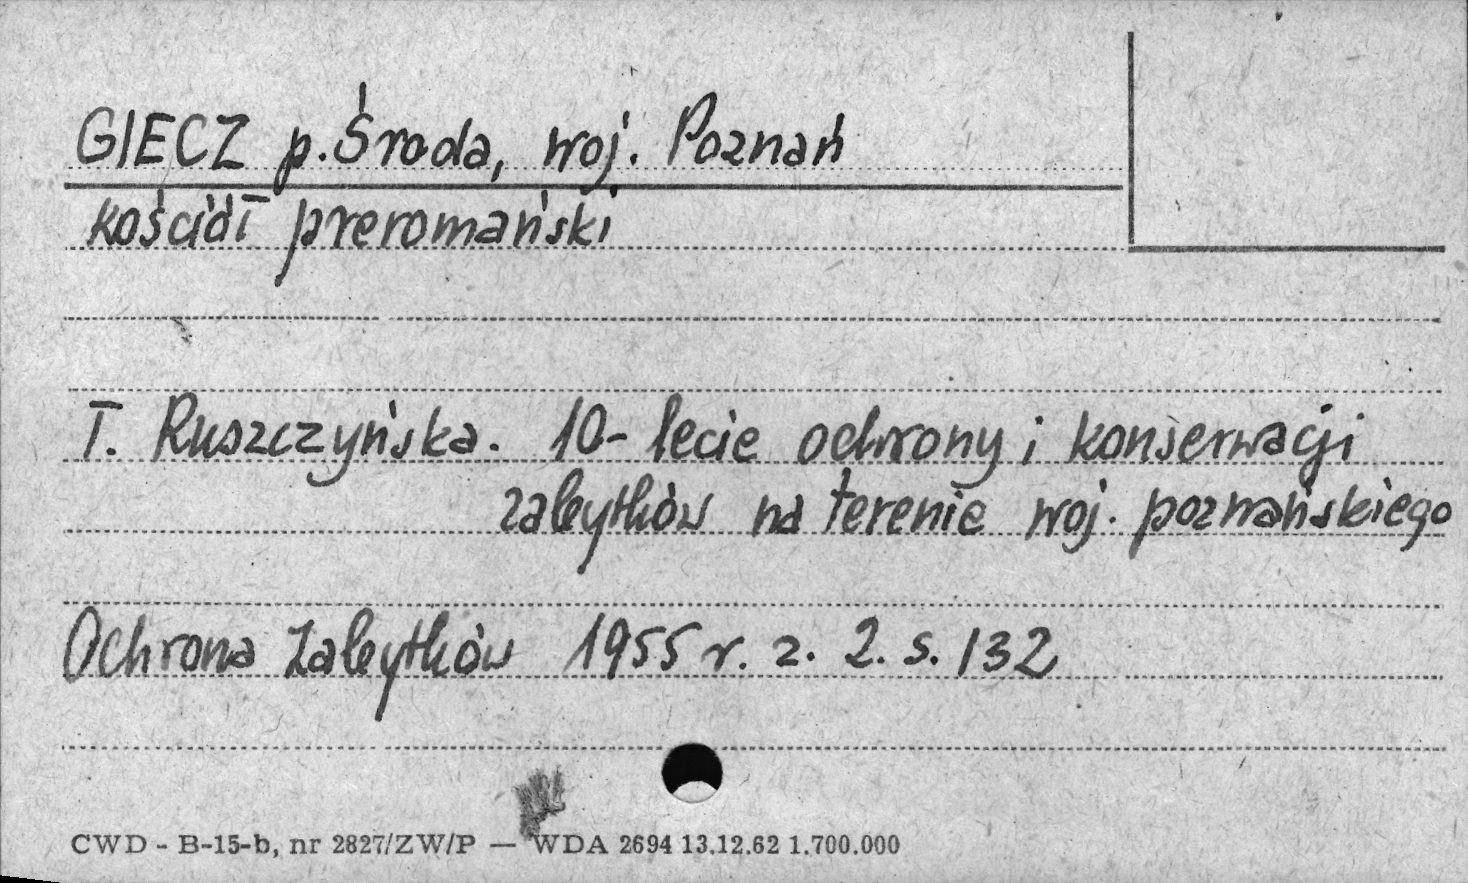 GIECZ p. Środa, woj. Poznań
kościół preromański
T. Ruszczyńska. 10-lecie ochrony i konserwacji
zabytków na terenie woj. poznańskiego
Ochrona Zabytków 1955 r. z. 2. s. 132
CWD - B-15-b, nr 2827/ZW/P — WDA 2694 13.12.62 1.700.000